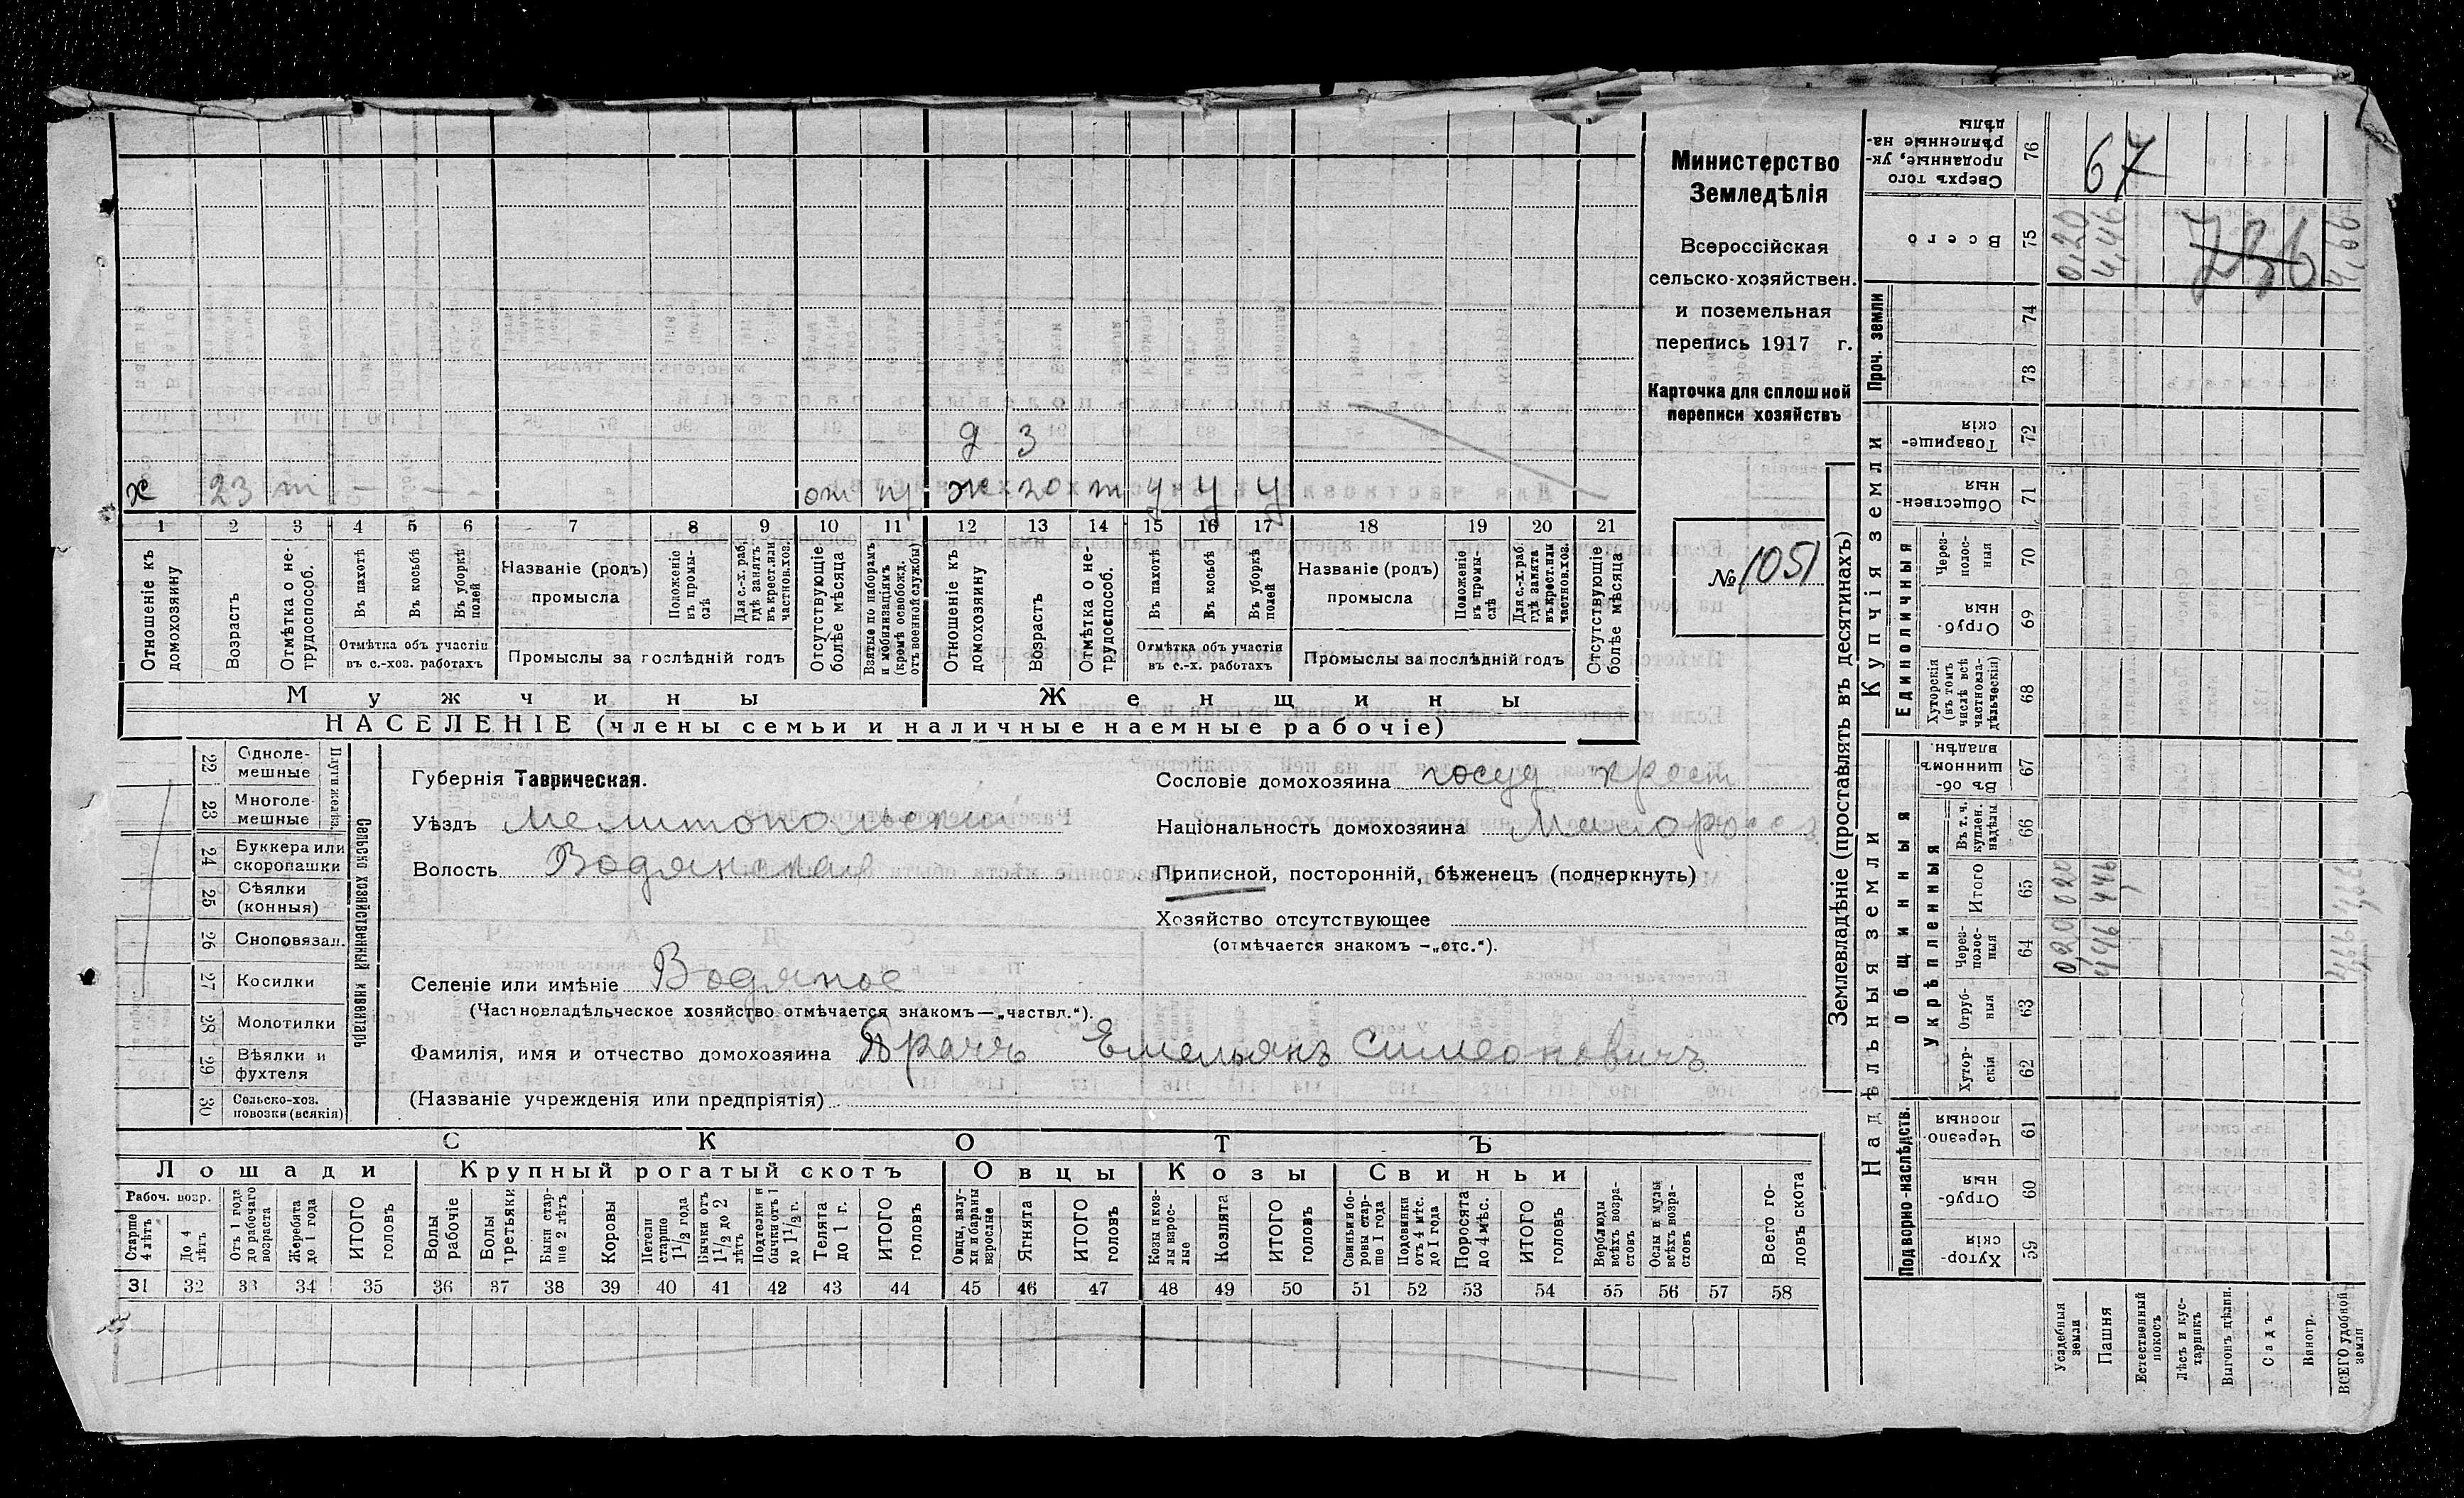 Министерство
Земледѣлія
Всероссійская
сельско-хозяйствен.
и поземельная
перепись 1917 г.
Карточка для сплошной
переписи хозяйствъ
№ 1051
д 3
х 23 т - - - отс ж 20 т у у у
1 2 3 4 5 6 7 8 9 10 11 12 13 14 15 16 17 18 19 20 21
Отношеніе къ домохозяину
Возрастъ
Отмѣтка о не-трудоспособ.
Въ пахотѣ
Въ косьбѣ
Въ уборкѣ полей
Отмѣтка объ участіи въ с.-хоз. работахъ
Названіе (родъ) промысла
Положеніе въ промы-слѣ
Для с.-х. раб. гдѣ занятъ въ крест. или частновл. хоз.
Промыслы за послѣдній годъ
Отсутствующіе болѣе мѣсяца
Взятые по наборамъ и мобилизаціямъ (кромѣ освобожд. отъ военной службы)
Отношеніе къ домохозяину
Возрастъ
Отмѣтка о не-трудоспособ.
Въ пахотѣ
Въ косьбѣ
Въ уборкѣ полей
Отмѣтка объ участіи въ с.-х. работахъ
Названіе (родъ) промысла
Положеніе въ промы-слѣ
Для с.-х. раб. гдѣ занята въ крест. или частнов. хоз.
Промыслы за послѣдній годъ
Отсутствующіе болѣе мѣсяца
Мужчины Женщины
НАСЕЛЕНІЕ (члены семьи и наличные наемные рабочіе)
22 Одноле-мешные
23 Многоле-мешные
Плуги желѣз.
24 Буккера или скоропашки
25 Сѣялки (конныя)
26 Сноповязал.
27 Косилки
28 Молотилки
29 Вѣялки и фухтеля
30 Сельско-хоз. повозки (всякія)
Сельско хозяйственный инвентарь
Губернія Таврическая.
Уѣздъ Мелитопольскій
Волость Водянская
Сословіе домохозяина госуд крест
Національность домохозяина Малоросс
Приписной, посторонній, бѣженецъ (подчеркнуть)
Хозяйство отсутствующее
(отмѣчается знакомъ —„отс.“).
Селеніе или имѣніе Водяное
(Частновладѣльческое хозяйство отмѣчается знакомъ—„частвл.“).
Фамилія, имя и отчество домохозяина Емельянъ Симеоновичъ
(Названіе учрежденія или предпріятія)
СКОТЪ
Лошади Крупный рогатый скотъ Овцы Козы Свиньи
Рабоч. возр.
Старше 4 лѣтъ
До 4 лѣтъ
Отъ 1 года до рабочаго возраста
Жеребята до 1 года
ИТОГО головъ
Волы рабочіе
Волы третьяки
Быки стар-ше 2 лѣтъ
Коровы
Нетели старше 1½ года
Бычки отъ 1½ до 2 лѣтъ
Подтелки и бычки отъ 1 до 1½ г.
Телята до 1 г.
ИТОГО головъ
Овцы, валу-хи и бараны взрослые
Ягнята
ИТОГО головъ
Козы и коз-лы взрос-лые
Козлята
ИТОГО головъ
Свиньи и бо-ровы стар-ше 1 года
Подсвинки отъ 4 мѣс. до 1 года
Поросята до 4 мѣс.
ИТОГО головъ
Верблюды всѣхъ возра-стовъ
Ослы и мулы всѣхъ возра-стовъ
Всего го-ловъ скота
31 32 33 34 35 36 37 38 39 40 41 42 43 44 45 46 47 48 49 50 51 52 53 54 55 56 57 58
Землевладѣніе (проставлять въ десятинахъ)
Надѣльныя земли
Купчія земли
Проч. земли
Подворно-наслѣдств.
Общинныя
Укрѣпленныя
Единоличныя
Сверхъ того проданные, ук-рѣпленные на-дѣлы 76 67
Всего 75 0,20 4,46 736 4,66
74
73
Товарище-скія 72
Обществен-ныя 71
Черезполос-ныя 70
Отруб-ныя 69
Хуторскія (въ томъ числѣ всѣ частновла-дѣльческія) 68
Въ об-щинномъ владѣн. 67
Въ т. ч. куплен. надѣлы 66
Итого 65 0,20 4,46 4,66
Черезполос-ныя 64 0,20 4,46 4,66
Отруб-ныя 63
Хутор-скія 62
Черезпо-лосныя 61
Отруб-ныя 60
Хутор-скія 59
Усадебныя земли
Пашня
Естественный покосъ
Лѣсъ и кус-тарникъ
Выгонъ цѣлин.
Садъ
Виногр.
ВСЕГО удобной земли